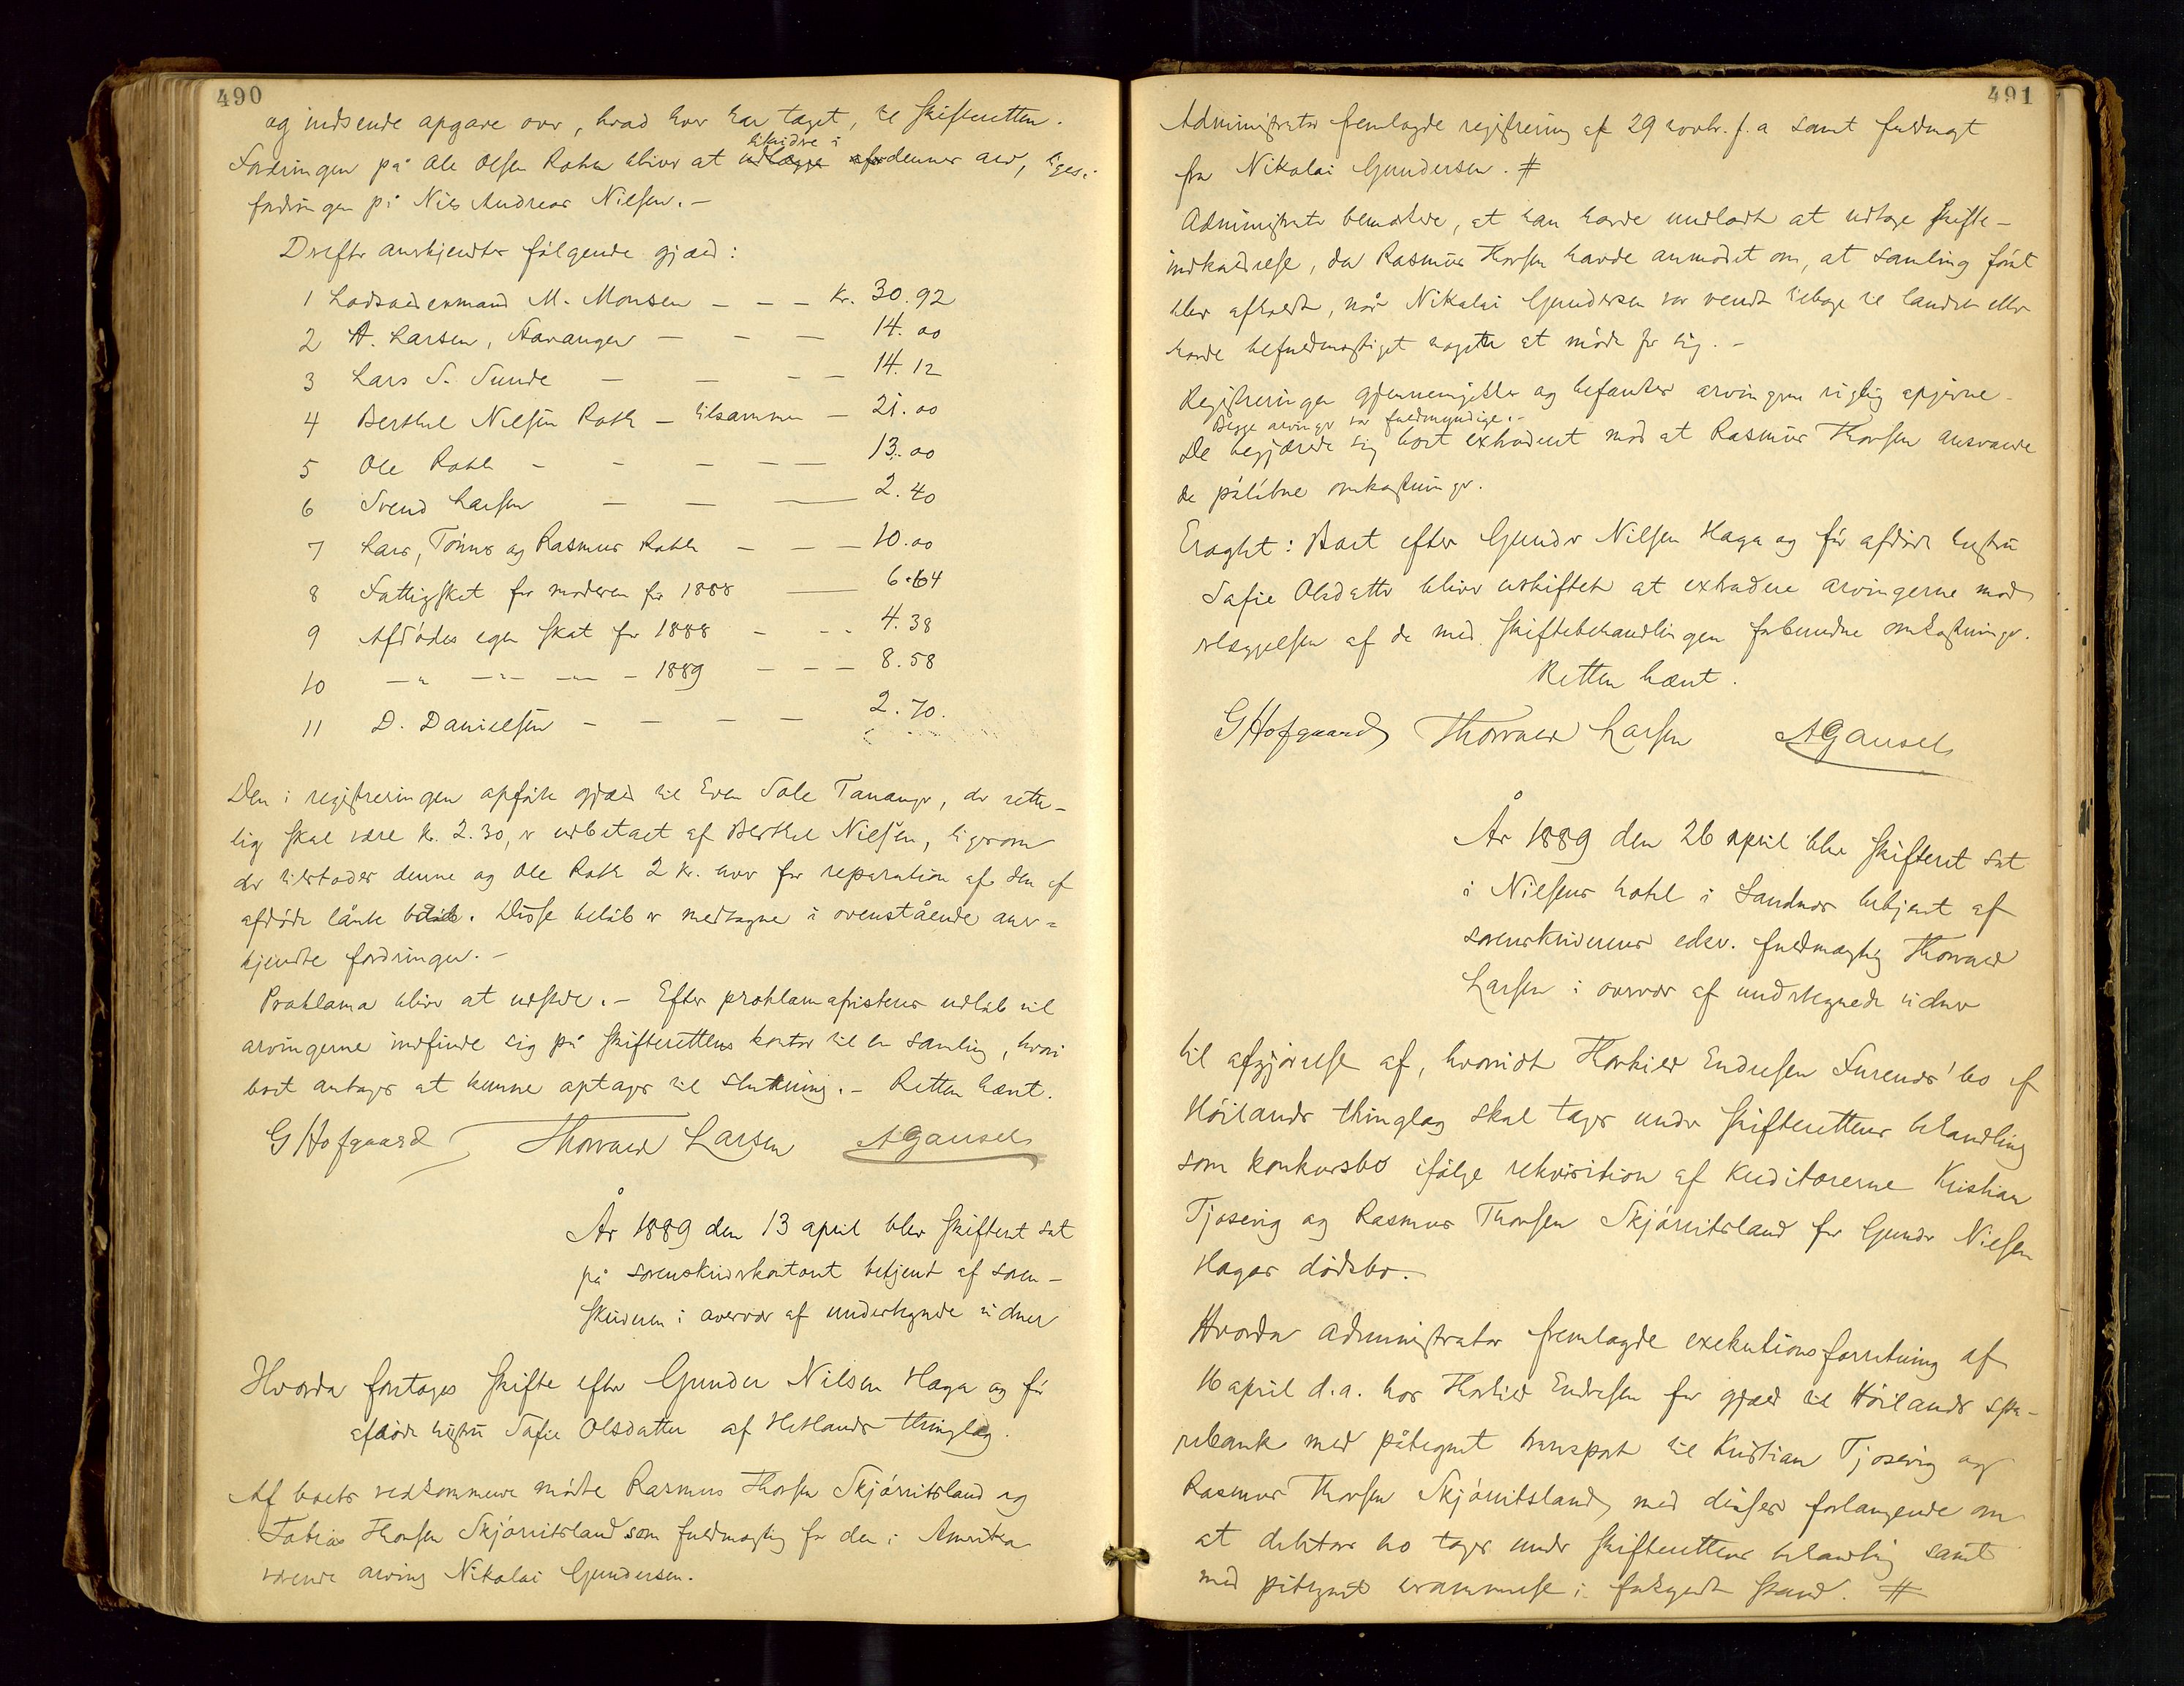 490
og indsende opgave over, hvad hver har taget, til skifteretten.
likvidere i
Fordringen på Ole Olsen Roth bliver at udlægge af dennes arv, liges.
fordringen på Nils Andreas Nielsen. –
Derefter anerkjendtes følgende gjæld:
1 Lodsoldermand M. Monsen – – – kr. 30.92
2 A. Larsen, Stavanger – – – 14.00
3 Lars S. Sunde – – – – 14.12
4 Berthel Nielsen Roth – tilsammen – 21.00
5 Ole Roth – – – – – 13.00
6 Svend Larsen – – – 2.40
7 Lars, Tønnes og Rasmus Roth – – – 10.00
8 Fattigskat for moderen for 1888 – 6.64
9 Afdødes egen skat for 1888 – – – 4.38
10 –"– –"– –"– – 1889 – – – 8.58
11 D. Danielsen – – – – 2.70.
Den i registreringen opførte gjæld til Sven Sole Tananger, der rette-
lig skal være kr. 2.30, er udbetalt af Berthel Nielsen, ligesom
der tilstodes denne og Ole Roth 2 kr. hver for reparation af den af
afdøde lånte båd. Disse beløb er medtagne i ovenstående aner-
kjendte fordringer. –
Proklama bliver at udstede. – Efter proklamafristens udløb vil
arvingerne indfinde sig på skifterettens kontor til en samling, hvori
boet antages at kunne optages til slutning. – Retten hævet.
G Hofgaard Thorvald Larsen A Gausel
År 1889 den 13 april blev skifteret sat
på sorenskriverkontoret betjent af soren-
skriveren i overvær af undertegnede vidner
Hvorda foretages skifte efter Gunder Nilsen Haga og før
afdøde hustru Tafie Olsdatter af Hetlands thinglag.
Af boets vedkommende mødte Rasmus Thorsen Skjørritsland og
Tobias Thorsen Skjørritsland som fuldmægtig for den i Amerika
værende arving Nikolai Gundersen.
491
Administrator fremlagde registrering af 29 novbr. f. a samt fuldmagt
fra Nikolai Gundersen. #
Administrator bemærkede, at han havde undladt at udtage skifte-
indkaldelse, da Rasmus Thorsen havde anmodet om, at samling først
blev afholdt, når Nikolai Gundersen var vendt tilbage til landet eller
havde befuldmægtiget nogen til at møde for sig. –
Registreringen gjennemgikkes og befandtes arvingerne rigtig opgivne –
Begge arvinger var fuldmyndige. –
De begjærede sig boet extraderet mod at Rasmus Thorsen ansvarede
de påløbne omkostninger.
Eragtet: Boet efter Gunder Nilsen Haga og før afdøde hustru
Tafie Olsdatter bliver uskiftet at extradere arvingerne mod
erlæggelsen af de med skiftebehandlingen forbundne omkostninger.
Retten hævet.
G Hofgaard Thorvald Larsen A Gausel
År 1889 den 26 april blev skifteret sat
i Nielsens hotel i Sandnes betjent af
sorenskriverens edsv. fuldmægtig Thorvald
Larsen i overvær af undertegnede vidner
til afgjørelse af, hvorvidt Thorkild Endresen Furenes' bo af
Høilands thinglag skal tages under skifterettens behandling
som konkursbo ifølge rekvisition af kreditorerne Kristian
Tjosevig og Rasmus Thorsen Skjørritsland for Gunder Nielsen
Hagas dødsbo. –
Hvorda administrator fremlagde exekutionsforretning af
16 april d. a. hos Thorkild Endresen for gjæld til Høilands spa-
rebank med påtegnet transport til Kristian Tjosevig og
Rasmus Thorsen Skjørritsland, med disses forlangende om
at debitors bo tages under skifterettens behandling samt
med påtegnet berammelse i forkyndt stand. #